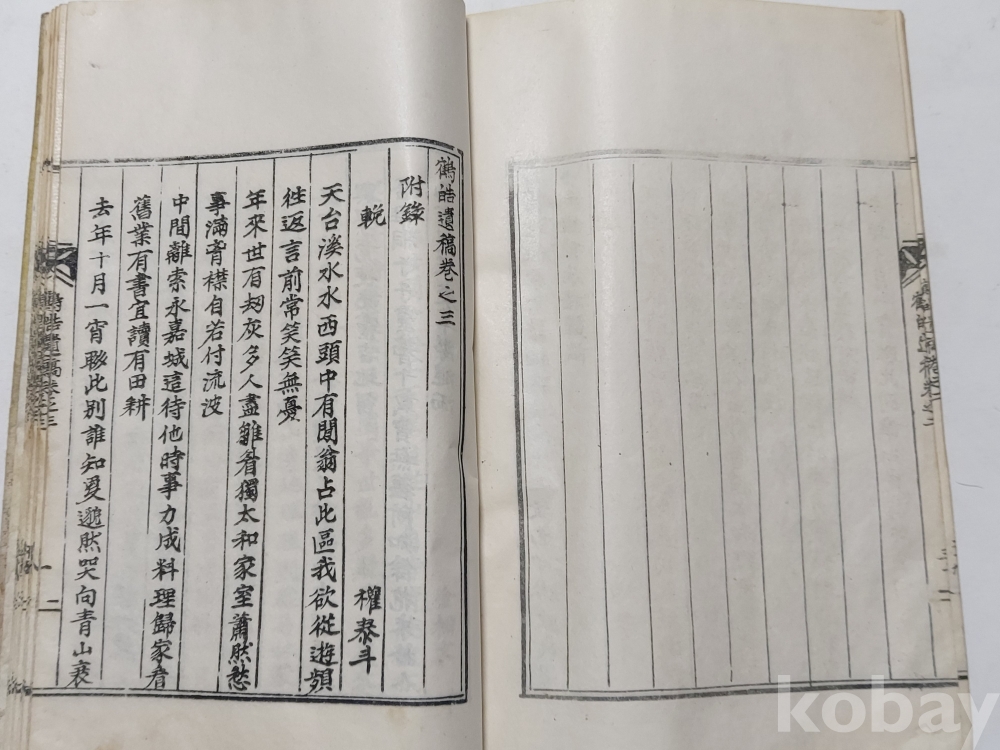 鶴皓遺稿卷之三
附錄
輓 權泰斗
天台溪水水西頭中有閒翁占此區我欲從遊頻
徃返言前常笑笑無憂
年來世有刼灰多人盡雛着獨太和家室蕭然愁
事滿胷襟自若付流波
中間離索永嘉城這待他時事力成料理歸家看
舊業有書宜讀有田耕
去年十月一宵聯此別誰知夏邈然哭向靑山衰
鶴皓遺稿卷之三
一
鶴皓遺稿卷之二
kobay